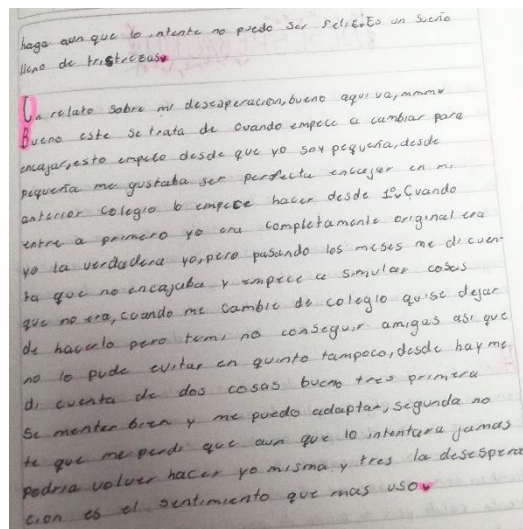 haga aun que lo intente no puedo ser feliz. Es un sueño
lleno de tristezas
Un relato sobre mi desesperación, bueno aqui va, mmmm
Bueno este se trata de Cuando empece a cambiar para
encajar, esto empezo desde que yo soy pequeña, desde
pequeña me gustaba ser perfecta encajar en mi
anterior colegio lo empece hacer desde 1º. Cuando
entre a primero yo era completamente original era
yo la verdadera yo, pero pasando los meses me di cuen-
ta que no encajaba y empece a simular cosas
que no era, cuando me cambie de colegio quise dejar
de hacerlo pero temi no conseguir amigas asi que
no lo pude evitar en quinto tampoco, desde hay me
di cuenta de dos cosas bueno tres primera
Se mentir bien y me puedo adaptar, segunda no
te que me perdi que aun que lo intentara jamas
podria volver hacer yo misma y tres la desespera
cion es el sentimiento que mas uso